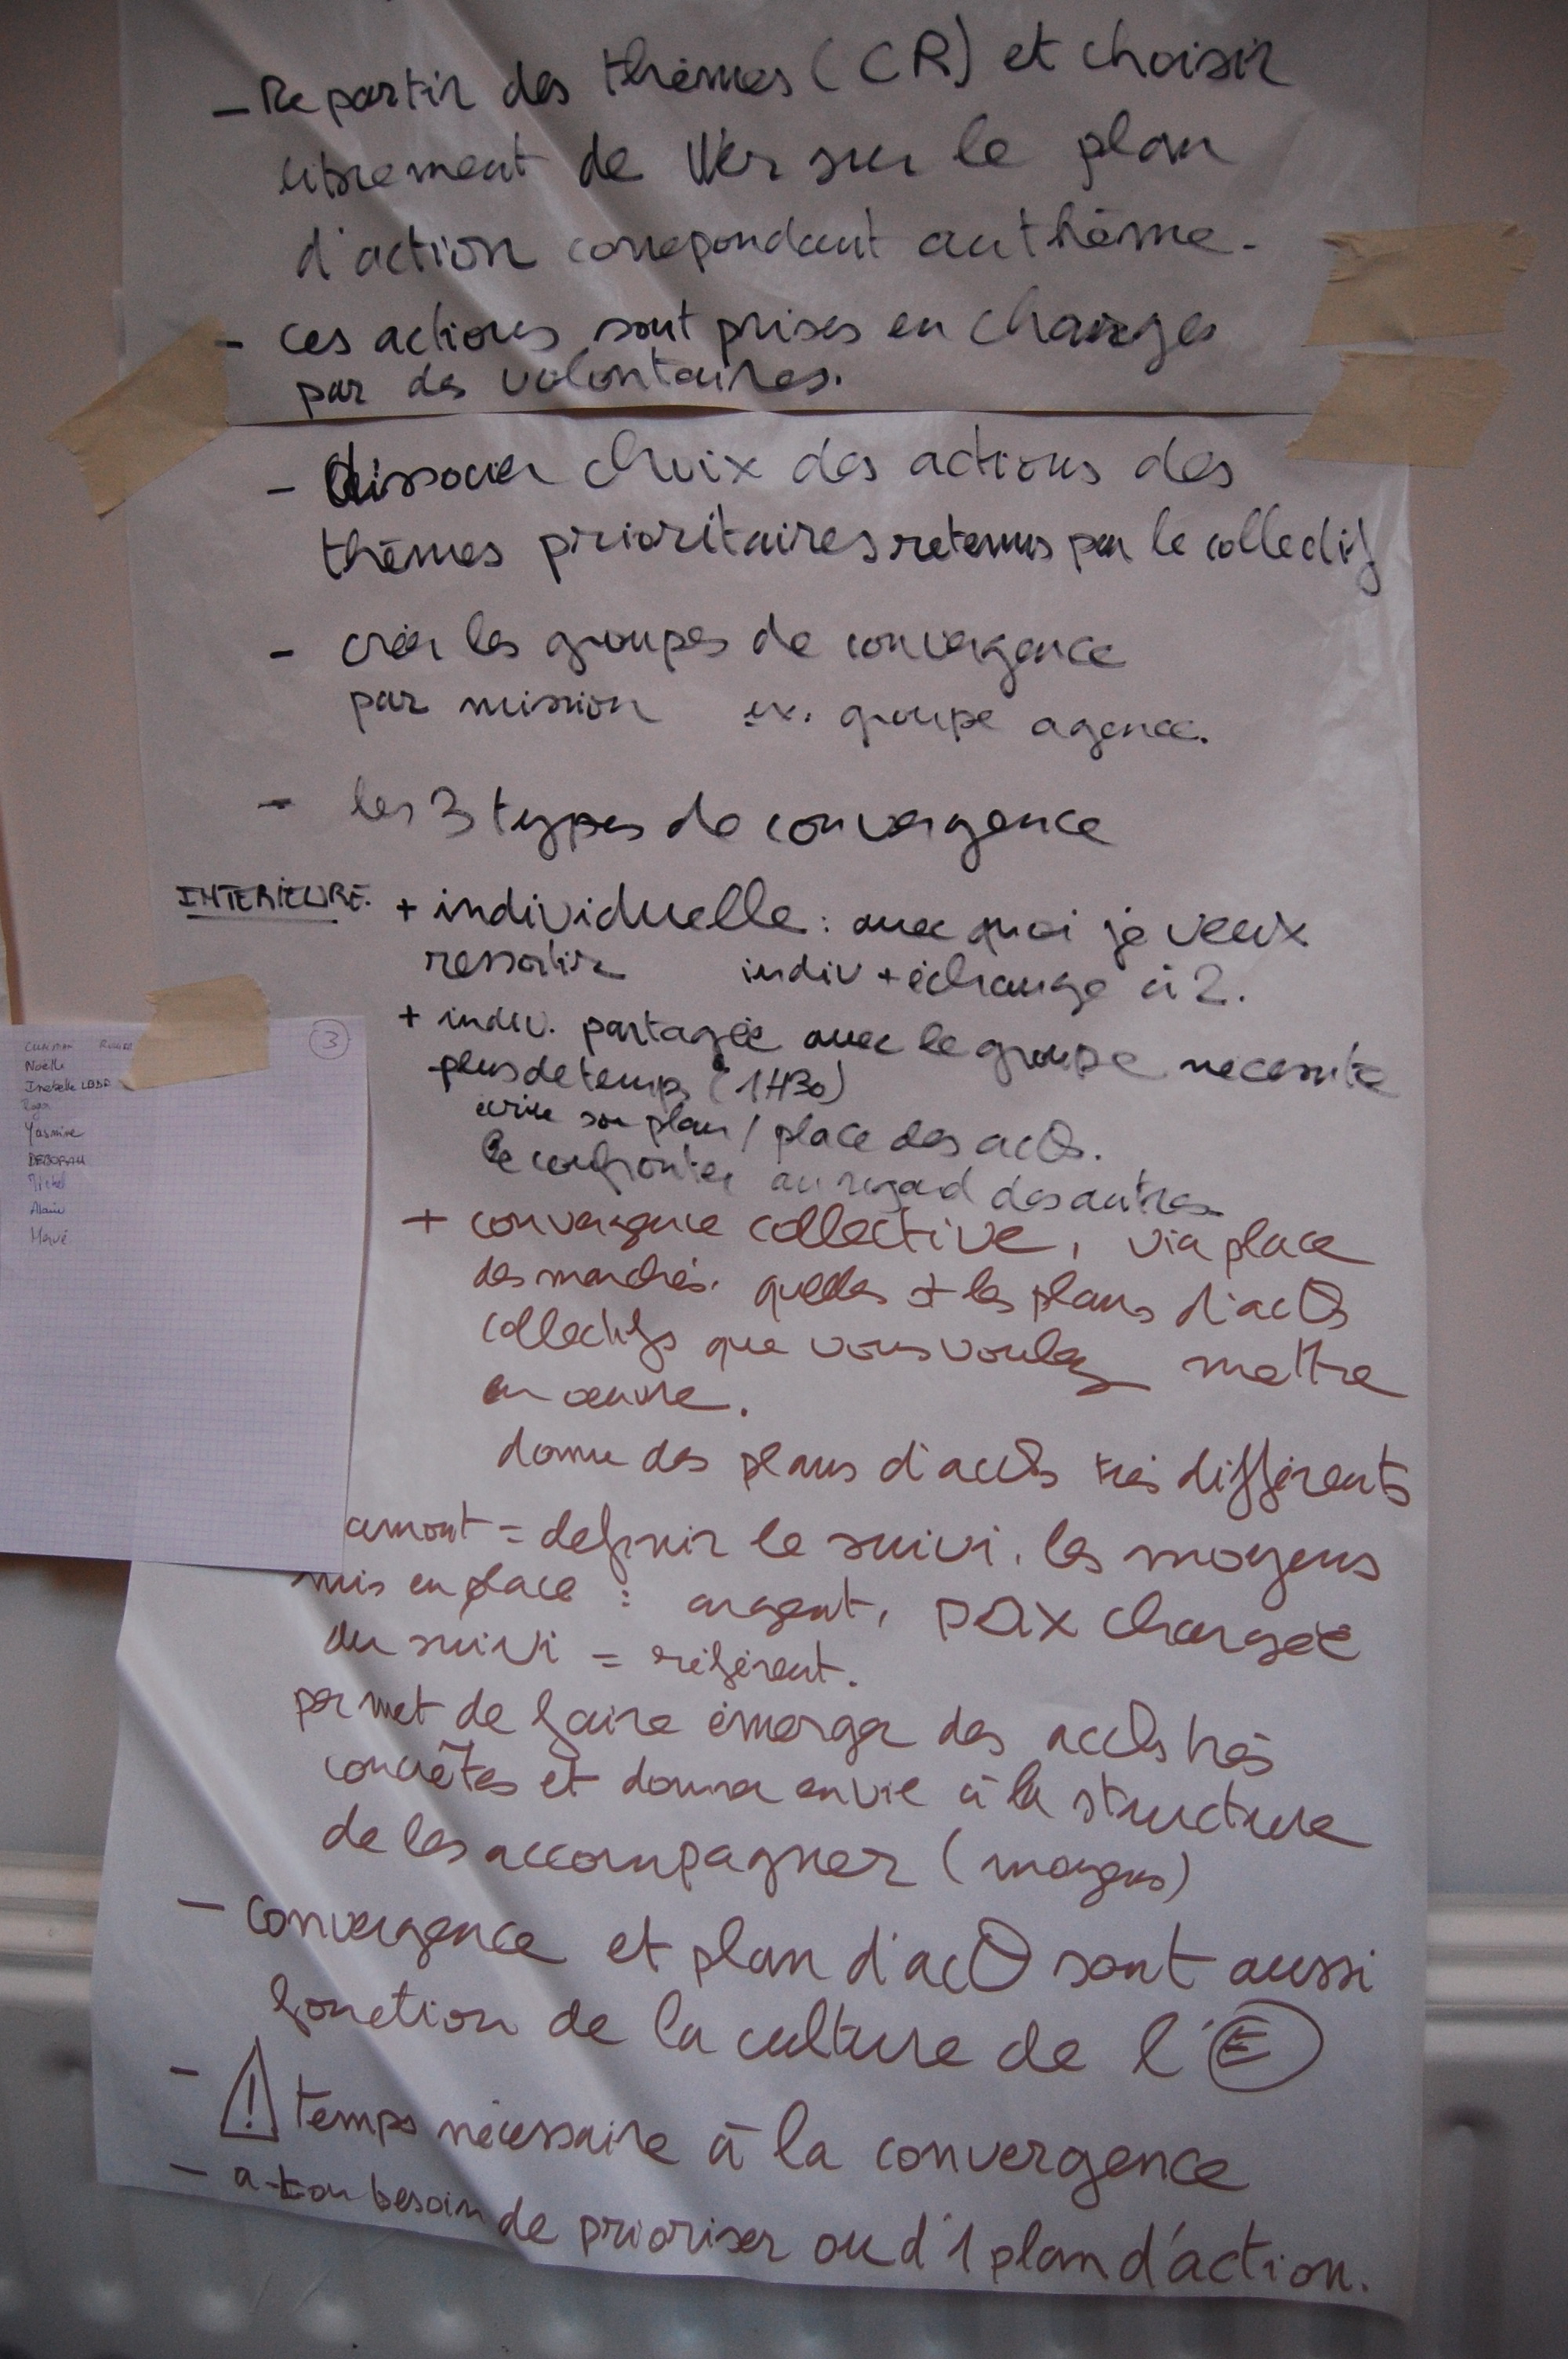 - Repartir des thèmes (CR) et choisir
librement de W'er sur le plan
d'action correpondant au thème.
- ces actions sont prises en charges
par des volontaires.
- dissocier choix des actions des
thèmes prioritaires retenus par le collectif
- créer les groupes de convergence
par mission ex. groupe agence.
- les 3 types de convergence
INTERIEURE. + individuelle : avec quoi je veux
ressortir indiv + échange à 2.
+ indiv. partagée avec le groupe necessite
plus de temps (1H30)
écrire son plan / place des acθ.
le confronter au regard des autres
+ convergence collective, via place
des marchés. quelles st les plans d'acθs
collectifs que vous voulez mettre
en œuvre.
donne des plans d'acθs très différents
amont = definir le suivi, les moyens
mis en place : argent, pax chargée
du suivi = référent.
permet de faire émerger des acθs très
concrêtes et donner envie à la structure
de les accompagner (moyens)
- convergence et plan d'acθ sont aussi
fonction de la culture de l'E
- ! temps nécessaire à la convergence
- a-t-on besoin de prioriser ou d'1 plan d'action.
3
Noëlle
Isabelle
Yasmine
DEBORAH
Michel
Alain
Hervé